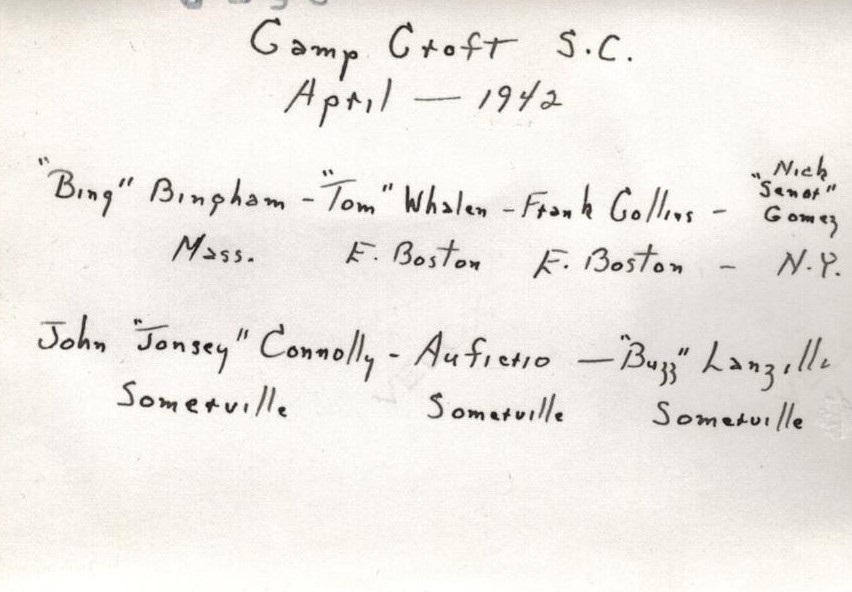 Camp Croft S.C.
April — 1942
"Bing" Bingham - "Tom" Whalen - Frank Collins - Nick "Senor" Gomez
Mass. E. Boston E. Boston - N.Y.
John "Jonsey" Connolly - Aufierio — "Buzz"
Somerville Somerville Somerville